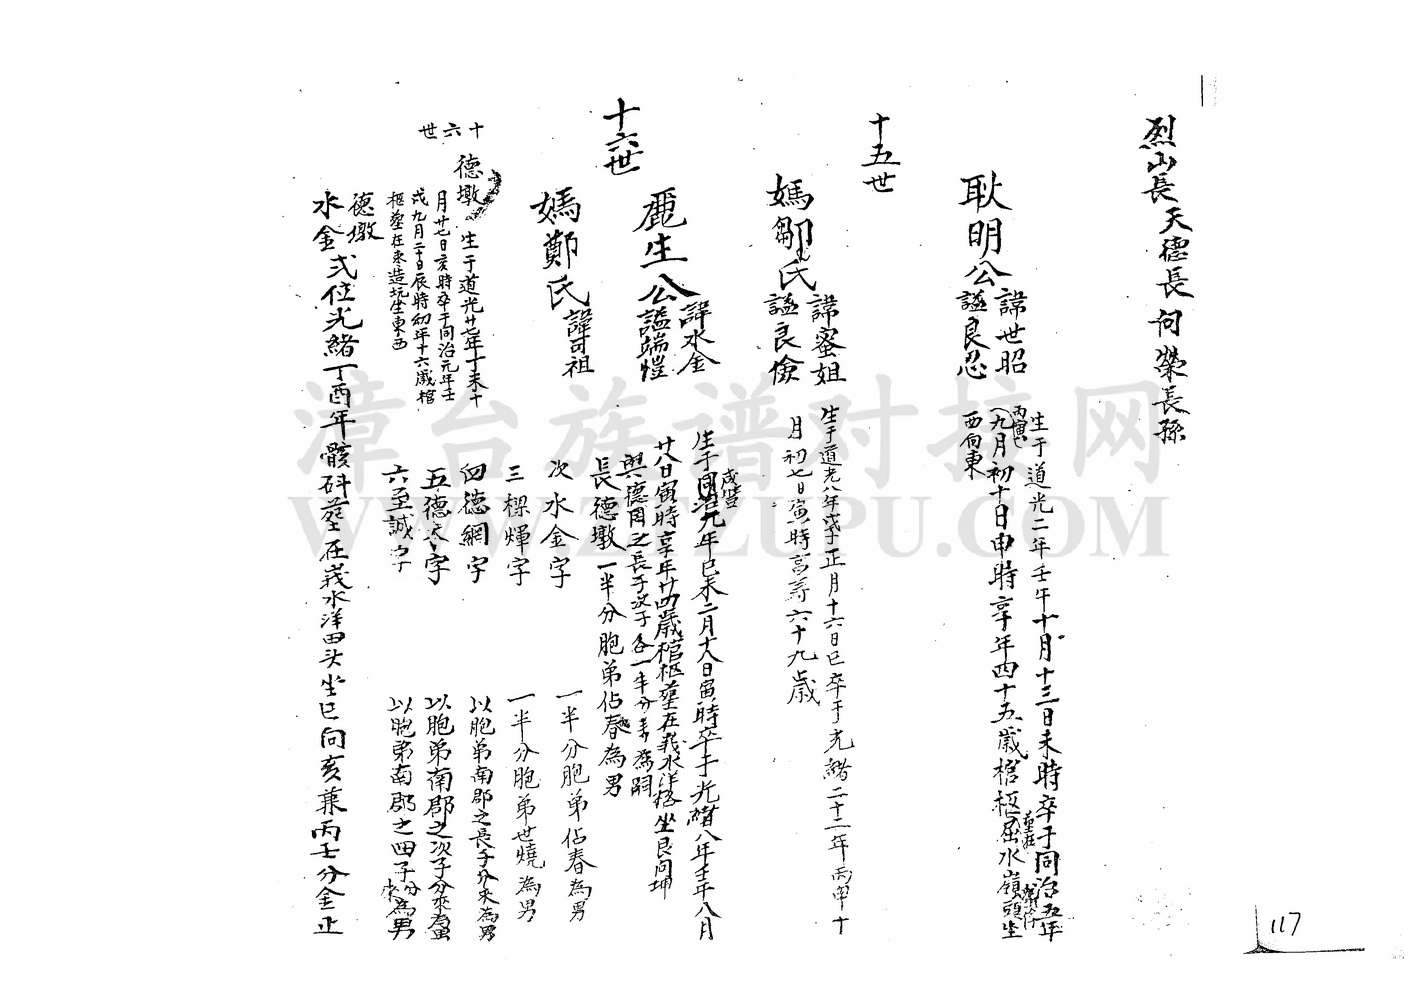 烈山長天德長何榮長孫
耿明公諱世昭諡良忍
生于道光二年壬午十月十三日未時卒于同治五年
丙寅九月初十日申時享年四十五歲棺柩葬在屈水嶺頭坐
西向東
十五世
媽鄒氏諱蜜姐諡良儉
生于道光八年戊子正月十六日巳卒于光緒二十二年丙申十
月初七日寅時高壽六十九歲
麗生公諱水金諡端愷
生于咸豐九年己未二月十八日寅時卒于光緒八年壬午八月
廿八日寅時享年廿四歲棺柩葬在峩水洋 坐艮向坤
與德周之長子次子各一半分 為嗣
十六世
媽鄭氏諱可祖
長德墩一半分胞弟佔春為男
次水金字 一半分胞弟佔春為男
三樑煇字 一半分胞弟世燒為男
四德綱字 以胞弟南郡之長子分來為男
五德 字 以胞弟南郡之次子分來為男
六至誠字 以胞弟南郡之四子分來為男
十六世
德墩 生于道光廿七年丁未十
月廿七日亥時卒于同治元年壬
戌九月二十日辰時幼年十六歲棺
柩葬在東造坑坐東西
德墩
水金 弍位光緒丁酉年骸 葬在峩水洋田头坐巳向亥兼丙壬分金正
漳台族谱对接网
WWW.ZTZUPU.COM
117